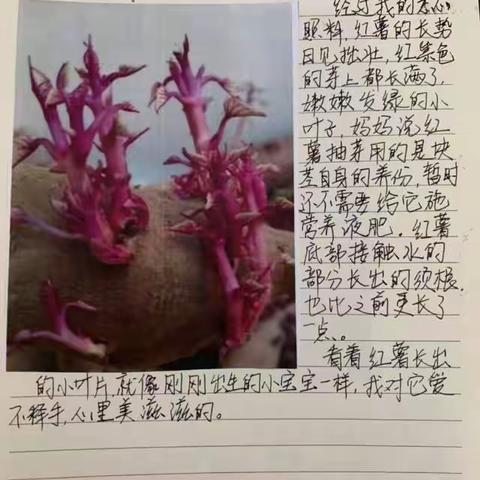 经过我的悉心
照料,红薯的长势
日见拙壮,红紫色
的芽上都长满了
嫩嫩发绿的小
叶子,妈妈说红
薯抽芽用的是块
茎自身的养份,暂时
还不需要给它施
营养液肥。红薯
底部接触水的
部分长出的须根,
也比之前更长了
一点。
看着红薯长出
的小叶片就像刚刚出生的小宝宝一样,我对它爱
不释手,心里美滋滋的。